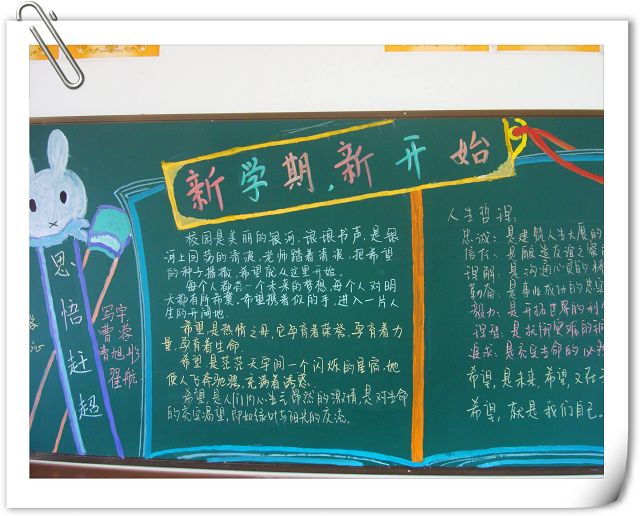 新学期,新开始
思悟赶超
写字
曹蓉
青旭
翟航
校园是美丽的银河,琅琅书声,是银
河上回荡的清波,老师踏着清波,把希望
的种子播撒,希望就从这里开始。
每个人都有一个未来的梦想,每个人对明
天都有所希冀,希望携着你的手,进入一片人
生的开阔地。
希望是热情之母,它孕育着荣誉,孕育着力
量,孕育着生命.
希望是茫茫天宇间一个闪烁的星宿,她
使人飞奔驰骋,充满着诱惑.
希望,是人们内心生元 的激情,是对生命
的充实渴望,即如绿叶与阳光的交流.
人生哲理:
忠诚:是建筑人生大厦的
信任:是酿造友谊之
理解:是沟通心灵的桥
勤奋:是事业成功的
毅力:是开拓世界的利
理想:是
追求:是充实生命的
希望,是未来,希望,又在
希望,就是我们自己。